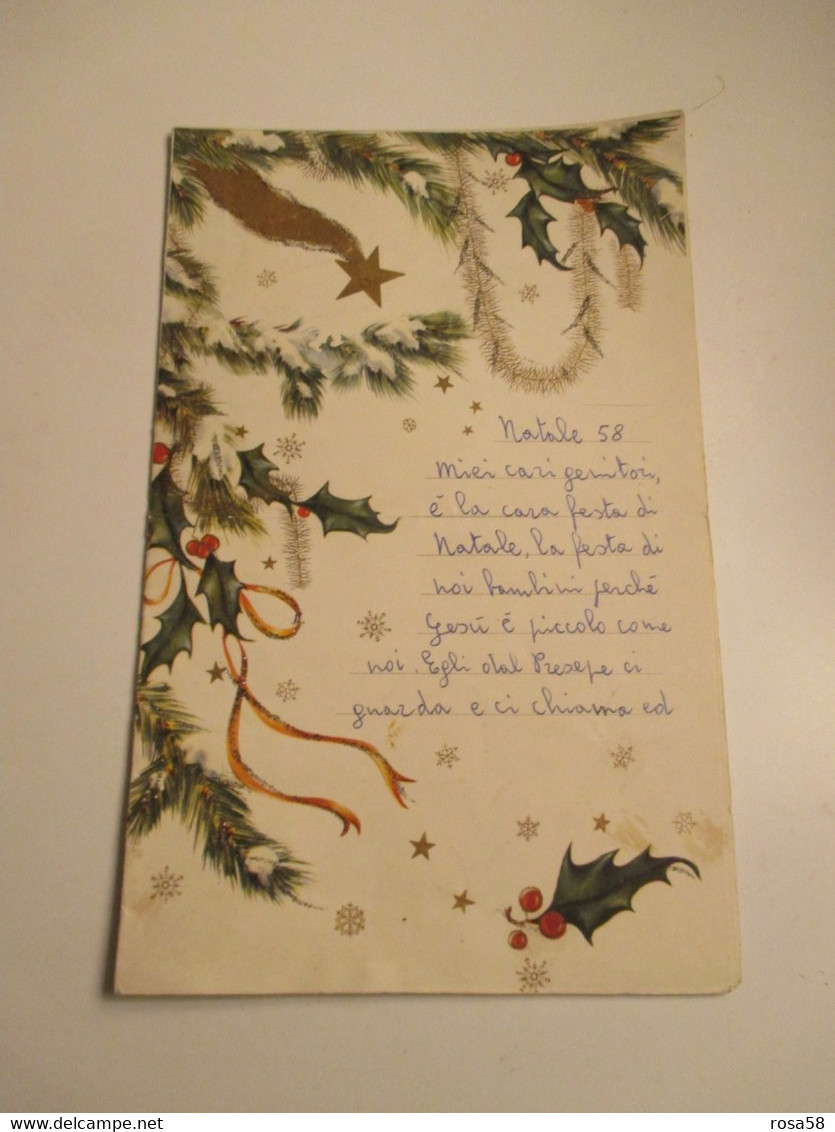 Natale 58
Miei cari genitori,
é la cara festa di
Natale, la festa di
noi bambini perché
Gesú é piccolo come
noi. Egli dal Presepe ci
guarda e ci chiama ed
delcampe.net
rosa58